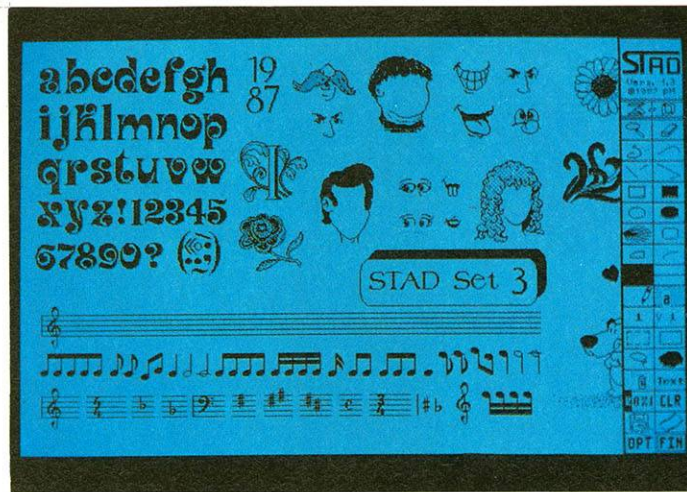 abcdefgh
ijklmnop
qrstuvw
xyz!12345
67890?
19
87
STAD Set 3
STAD
Vers. 1.3
a
Text
CLR
OPT FIN